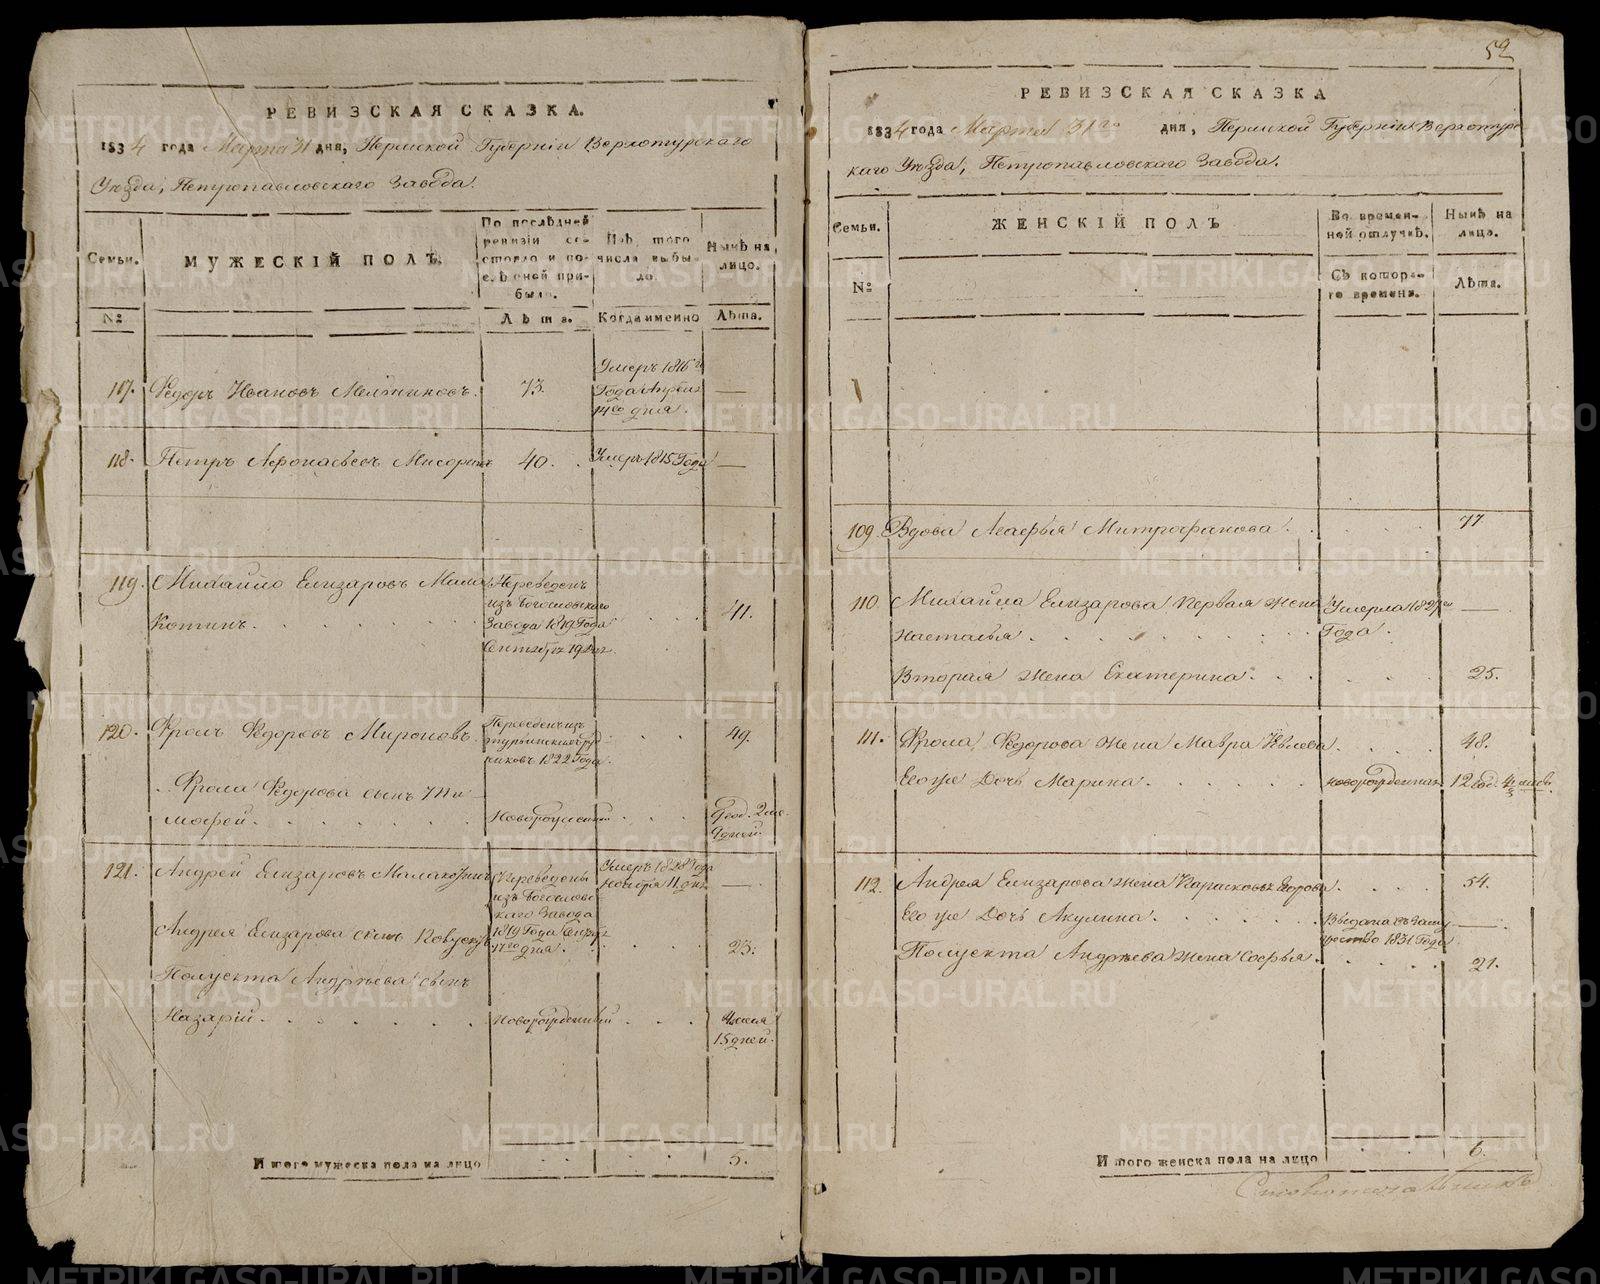 РЕВИЗСКАЯ СКАЗКА.
1834 года Марта 31 дня, Пермской Губерніи Верхотурскаго
Уѣзда, Петропавловскаго Завода.
Семьи.
МУЖЕСКІЙ ПОЛЪ.
По послѣдней
ревизіи со-
стояло и по-
слѣ оней при-
было.
Изъ того
числа выбы-
ло.
Нынѣ на
лицо.
№
Лѣта.
Когда именно
Лѣта.
117. Ѳедоръ Ивановъ Мельниковъ. 73.
Умеръ 1816го
Года Апреля
14го дня.
118. Петръ Афонасьевъ 40. Умеръ 1815 Года
119. Михайло Елизаровъ Мала
Котинъ.
Переведенъ
изъ Богословскаго
Завода 1819 Года
Сентября 19 дня.
41.
120. Фролъ Ѳедоровъ Мироновъ.
Переведенъ изъ
Турьинскихъ руд
никовъ 1822 Года.
49.
Фрола Ѳедорова сынъ Ти-
мофей.
Новорожденный
9 дней.
121. Андрей Елизаровъ
Переведенъ
изъ Богословс-
каго Завода
1819 Года
дня.
Умеръ 1828 Года
Ноября 11 дня
Андрея Елизарова сынъ
23.
Полуекта Андрѣева сынъ
Назарій.
Новорожденный
15 дней.
Итого мужеска пола на лицо 5.
52
РЕВИЗСКАЯ СКАЗКА
1834 года Марта 31го дня, Пермской Губерніи Верхотурс-
каго Уѣзда, Петропавловскаго Завода.
Семьи.
ЖЕНСКІЙ ПОЛЪ
Во времен-
ной отлучкѣ.
Нынѣ на
лицо.
№
Съ котора-
го времени.
Лѣта.
109. Вдова Агафья Митрофанова. 77
110. Михайла Елизарова первая жена
Настасья.
Умерла 1827го
Года.
Вторая жена Екатерина. 25.
111. Фрола Ѳедорова жена Мавра 48.
Его же Дочь Марина. новорожденная 12 год. 4 мѣс.
112. Андрея Елизарова жена Парасковья Егорова. 54.
Его же Дочь Акулина.
Выдана въ заму
жество 1831 Года
Полуекта Андрѣева жена Софья. 21.
Итого женска пола на лицо 6.